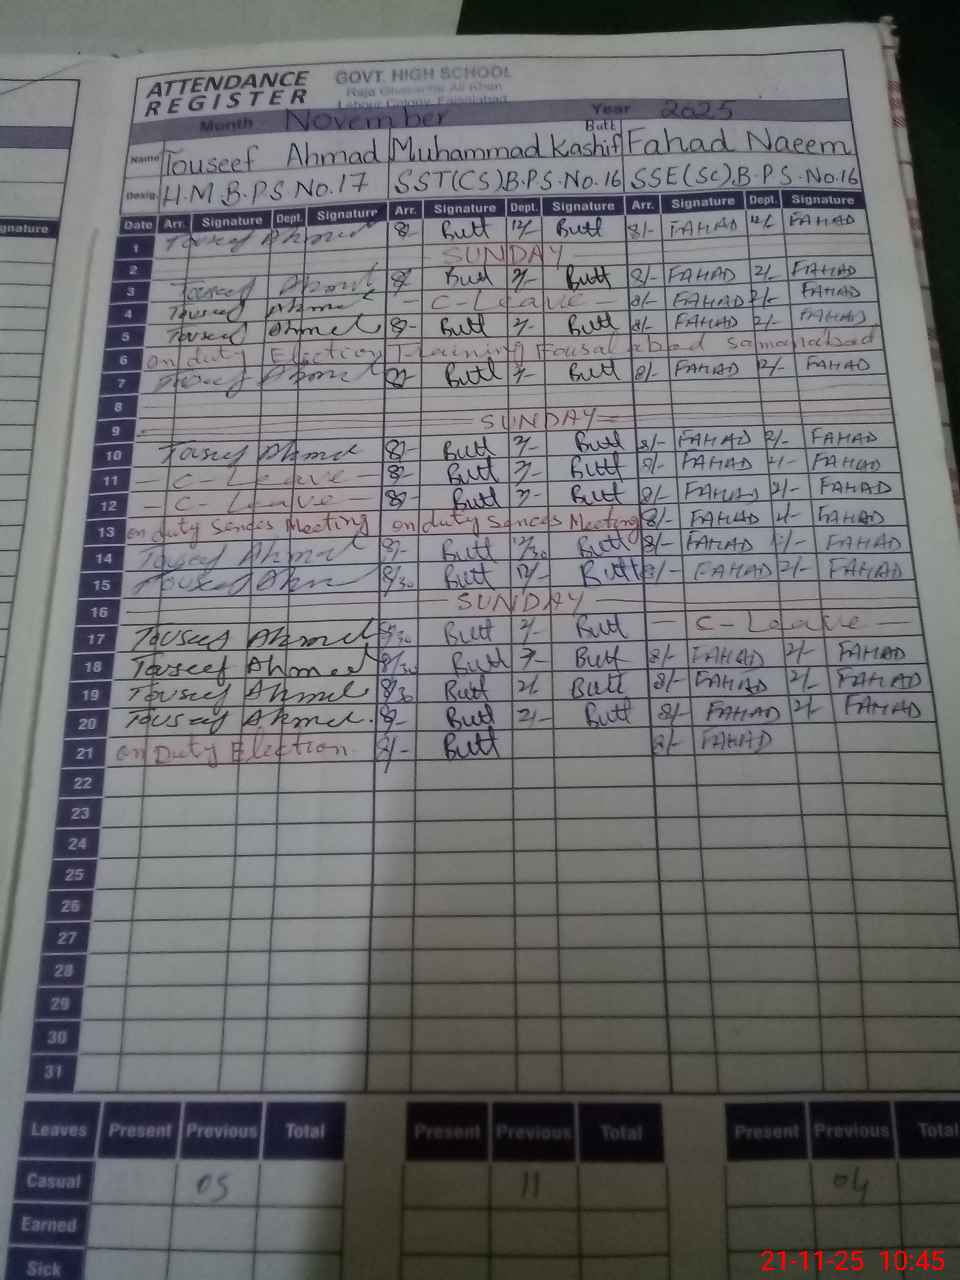 ATTENDANCE REGISTER
GOVT. HIGH SCHOOL
Labour Colony, Faisalabad
Month November Year 2025
Name Touseef Ahmad Muhammad Kashif Butt Fahad Naeem
Desig. H.M B.P.S No. 17 SST(CS) B.P.S. No. 16 SSE(Sc) B.P.S. No. 16
Date Arr. Signature Dept. Signature Arr. Signature Dept. Signature Arr. Signature Dept. Signature
1 Touseef Ahmed 8- Butt 12/- Butt 8/- FAHAD 12/- FAHAD
2 SUNDAY
3 Touseef Ahmed 8- Butt 2/- Butt 8/- FAHAD 2/- FAHAD
4 Touseef Ahmed - C-Leave - 8/- FAHAD 2/- FAHAD
5 Touseef Ahmed 8- Butt 2- Butt 8/- FAHAD 2/- FAHAD
6 on duty Election Training samanabad
7 Touseef Ahmed 8- Butt 2- Butt 8/- FAHAD 12/- FAHAD
8
9 SUNDAY
10 Touseef Ahmed 8- Butt 2/- Butt 8/- FAHAD 2/- FAHAD
11 - C-Leave - 8- Butt 2- Butt 8/- FAHAD 2/- FAHAD
12 - C-Leave - 8- Butt 2- Butt 8/- FAHAD 2/- FAHAD
13 on duty Sences Meeting on duty Sences Meeting 8/- FAHAD 2/- FAHAD
14 Touseef Ahmed 8/- Butt 12/30 Butt 8/- FAHAD FAHAD
15 Touseef Ahmed 8/30 Butt 12/- Butt 8/- FAHAD 2/- FAHAD
16 SUNDAY
17 Touseef Ahmed 8/30 Butt 2/- Butt - C-Leave -
18 Touseef Ahmed 8/30 Butt 2- Butt 8/- FAHAD 2/- FAHAD
19 Touseef Ahmed 8/30 Butt 2/- Butt 8/- FAHAD 2/- FAHAD
20 Touseef Ahmed. 8- Butt 2/- Butt 8/- FAHAD 2/- FAHAD
21 on Duty Election 8/- Butt 8/- FAHAD
22
23
24
25
26
27
28
29
30
31
Leaves Present Previous Total Present Previous Total Present Previous Total
Casual 05 11 04
Earned
Sick
21-11-25 10:45